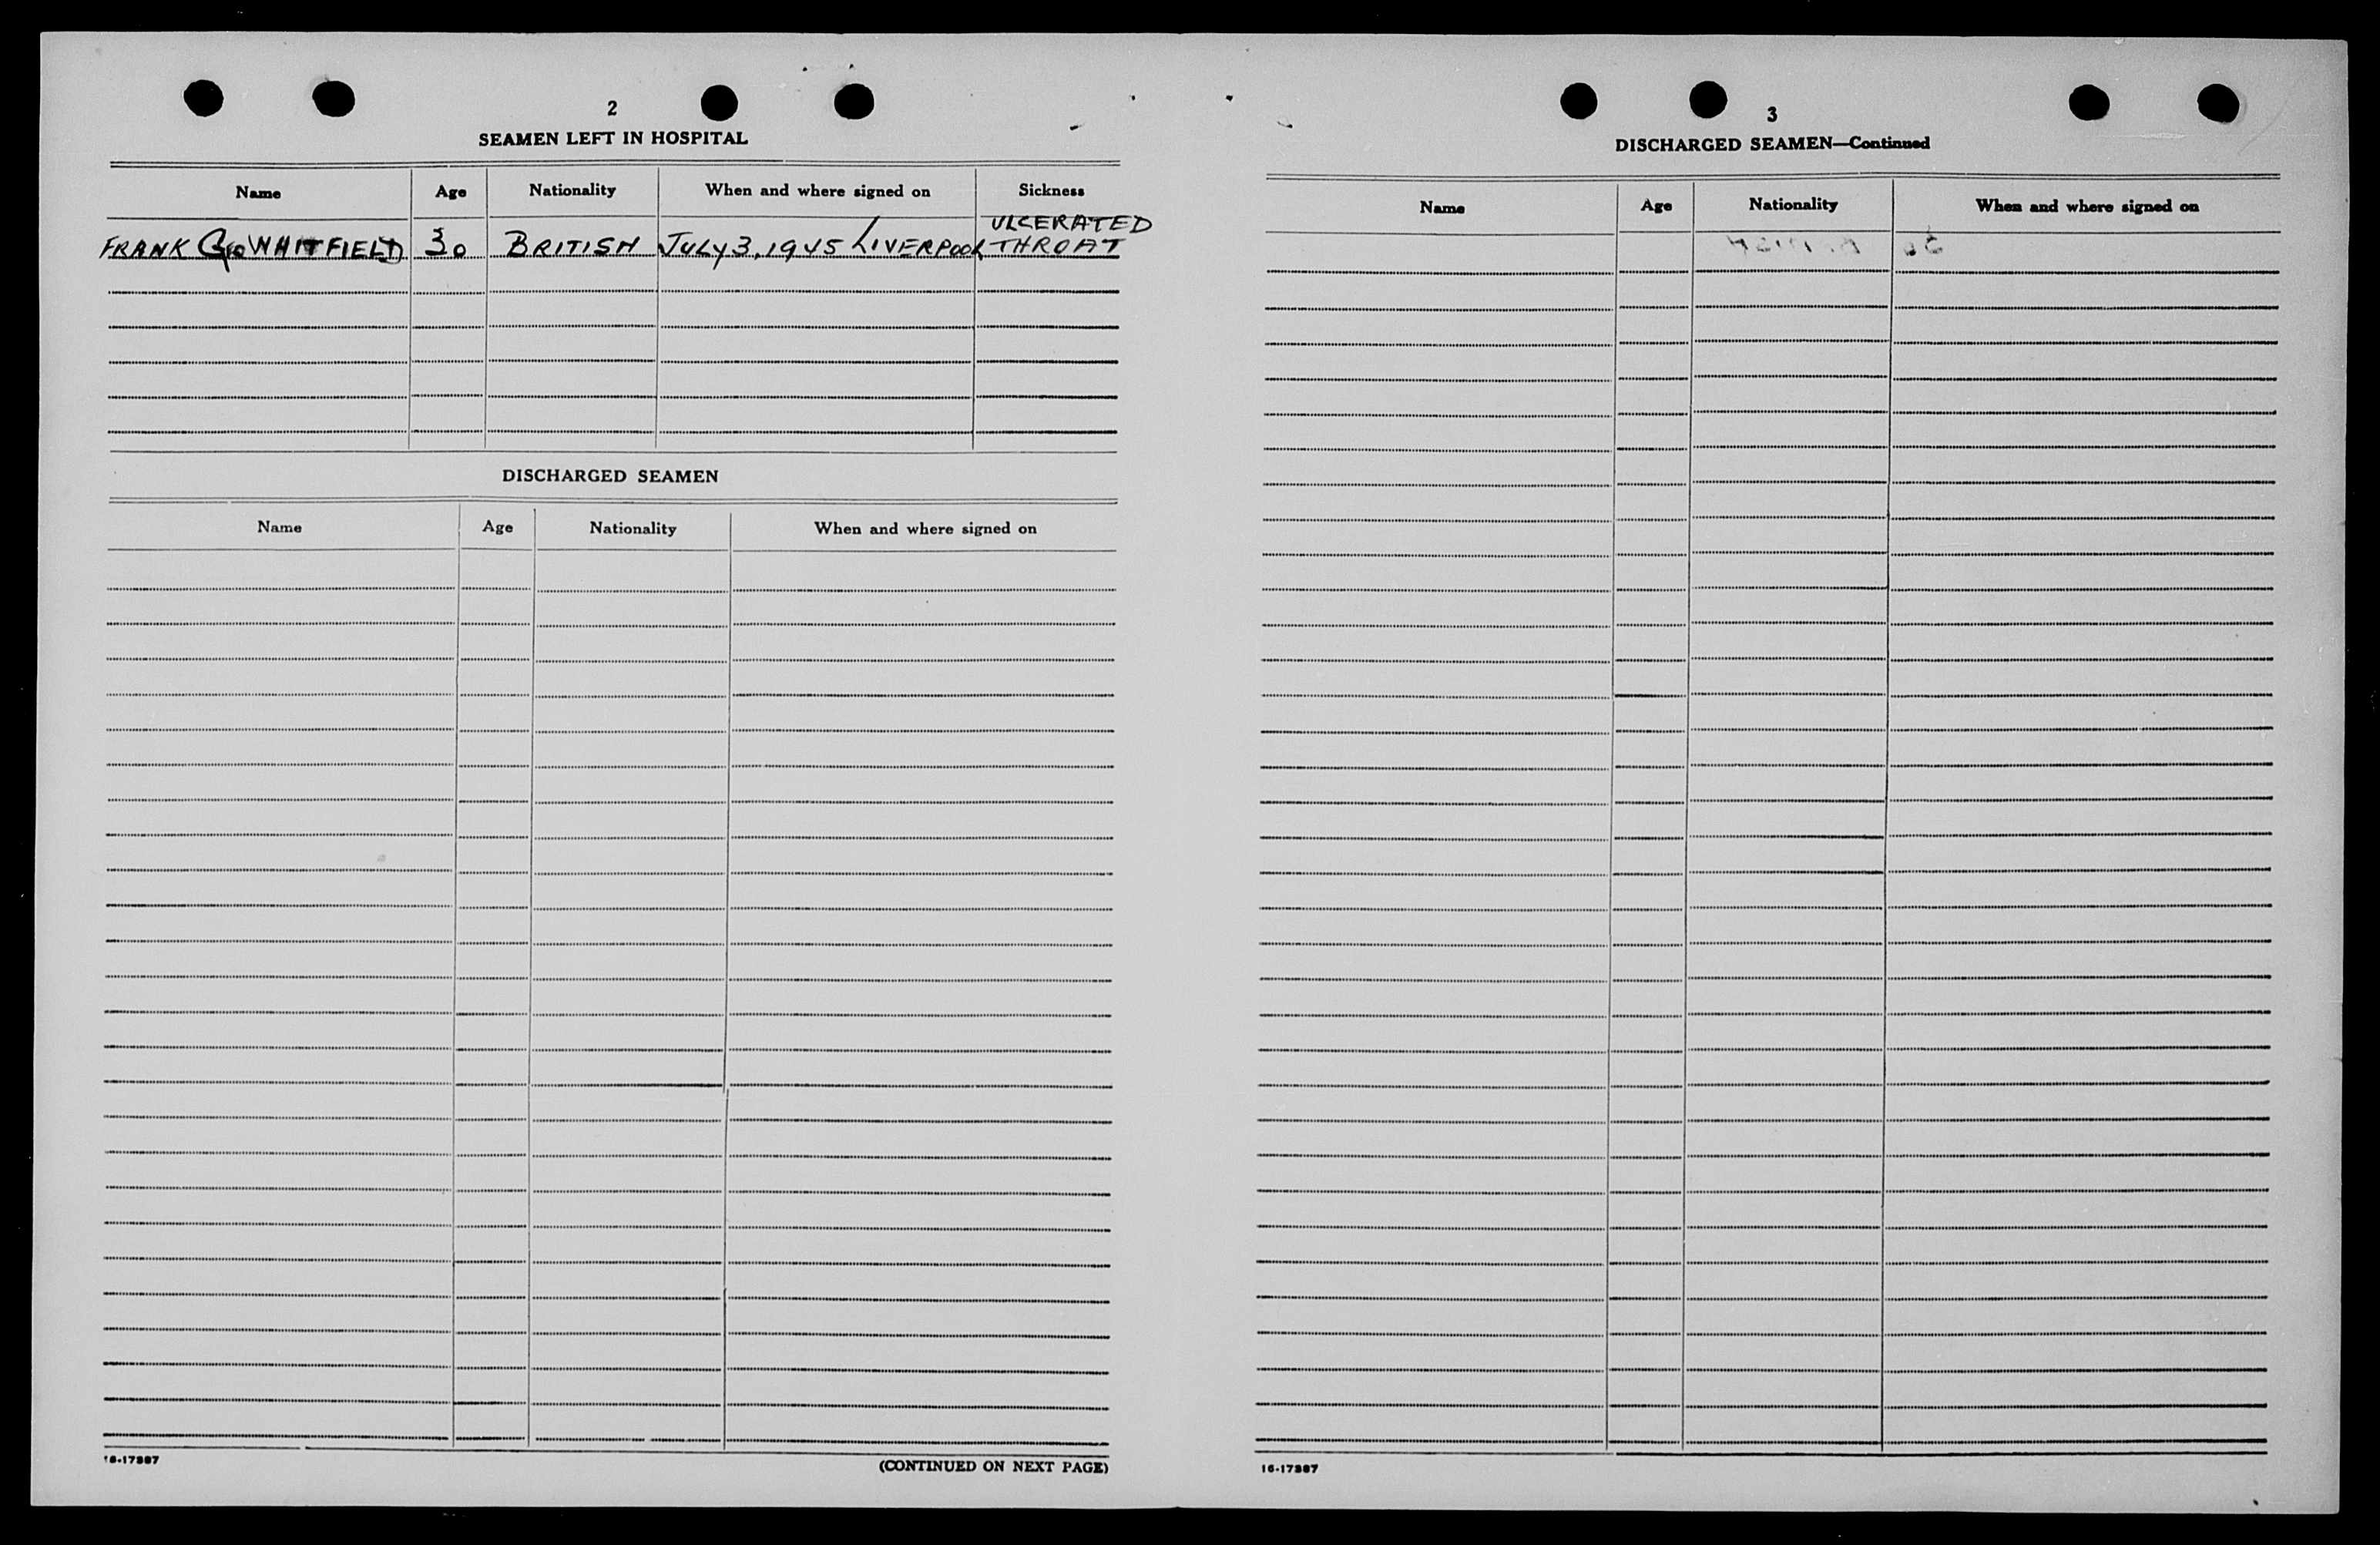 2
SEAMEN LEFT IN HOSPITAL
Name Age Nationality When and where signed on Sickness
FRANK Geo WHITFIELD 30 BRITISH JULY 3, 1945 LIVERPOOL ULCERATED
THROAT
DISCHARGED SEAMEN
Name Age Nationality When and where signed on
16-17387
(CONTINUED ON NEXT PAGE)
3
DISCHARGED SEAMEN—Continued
Name Age Nationality When and where signed on
16-17387